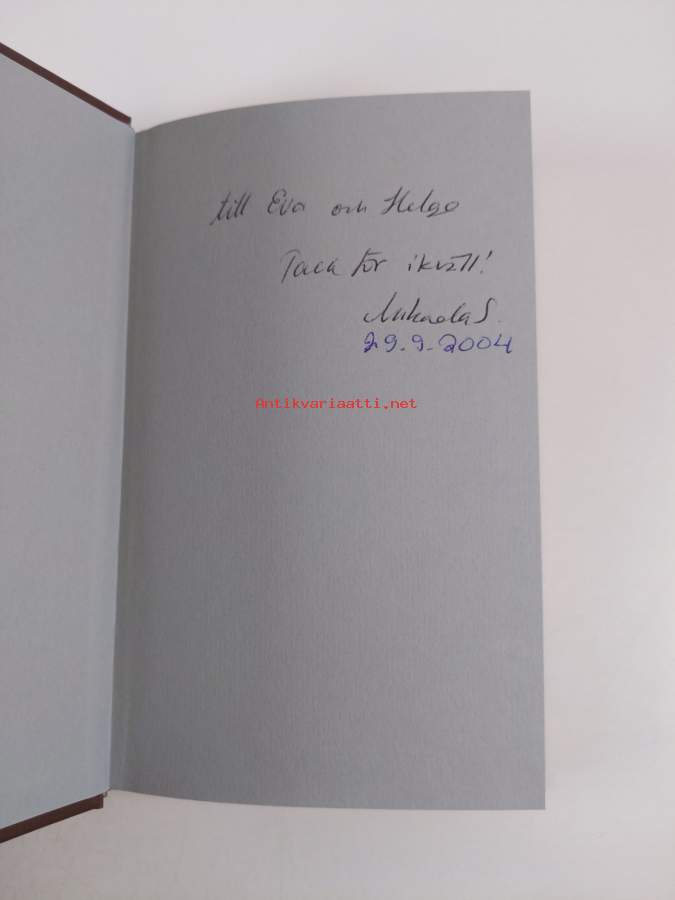 till Eva och Helge
Tack för ikväll!
Mikaela S.
29.9.2004
Antikvariaatti.net